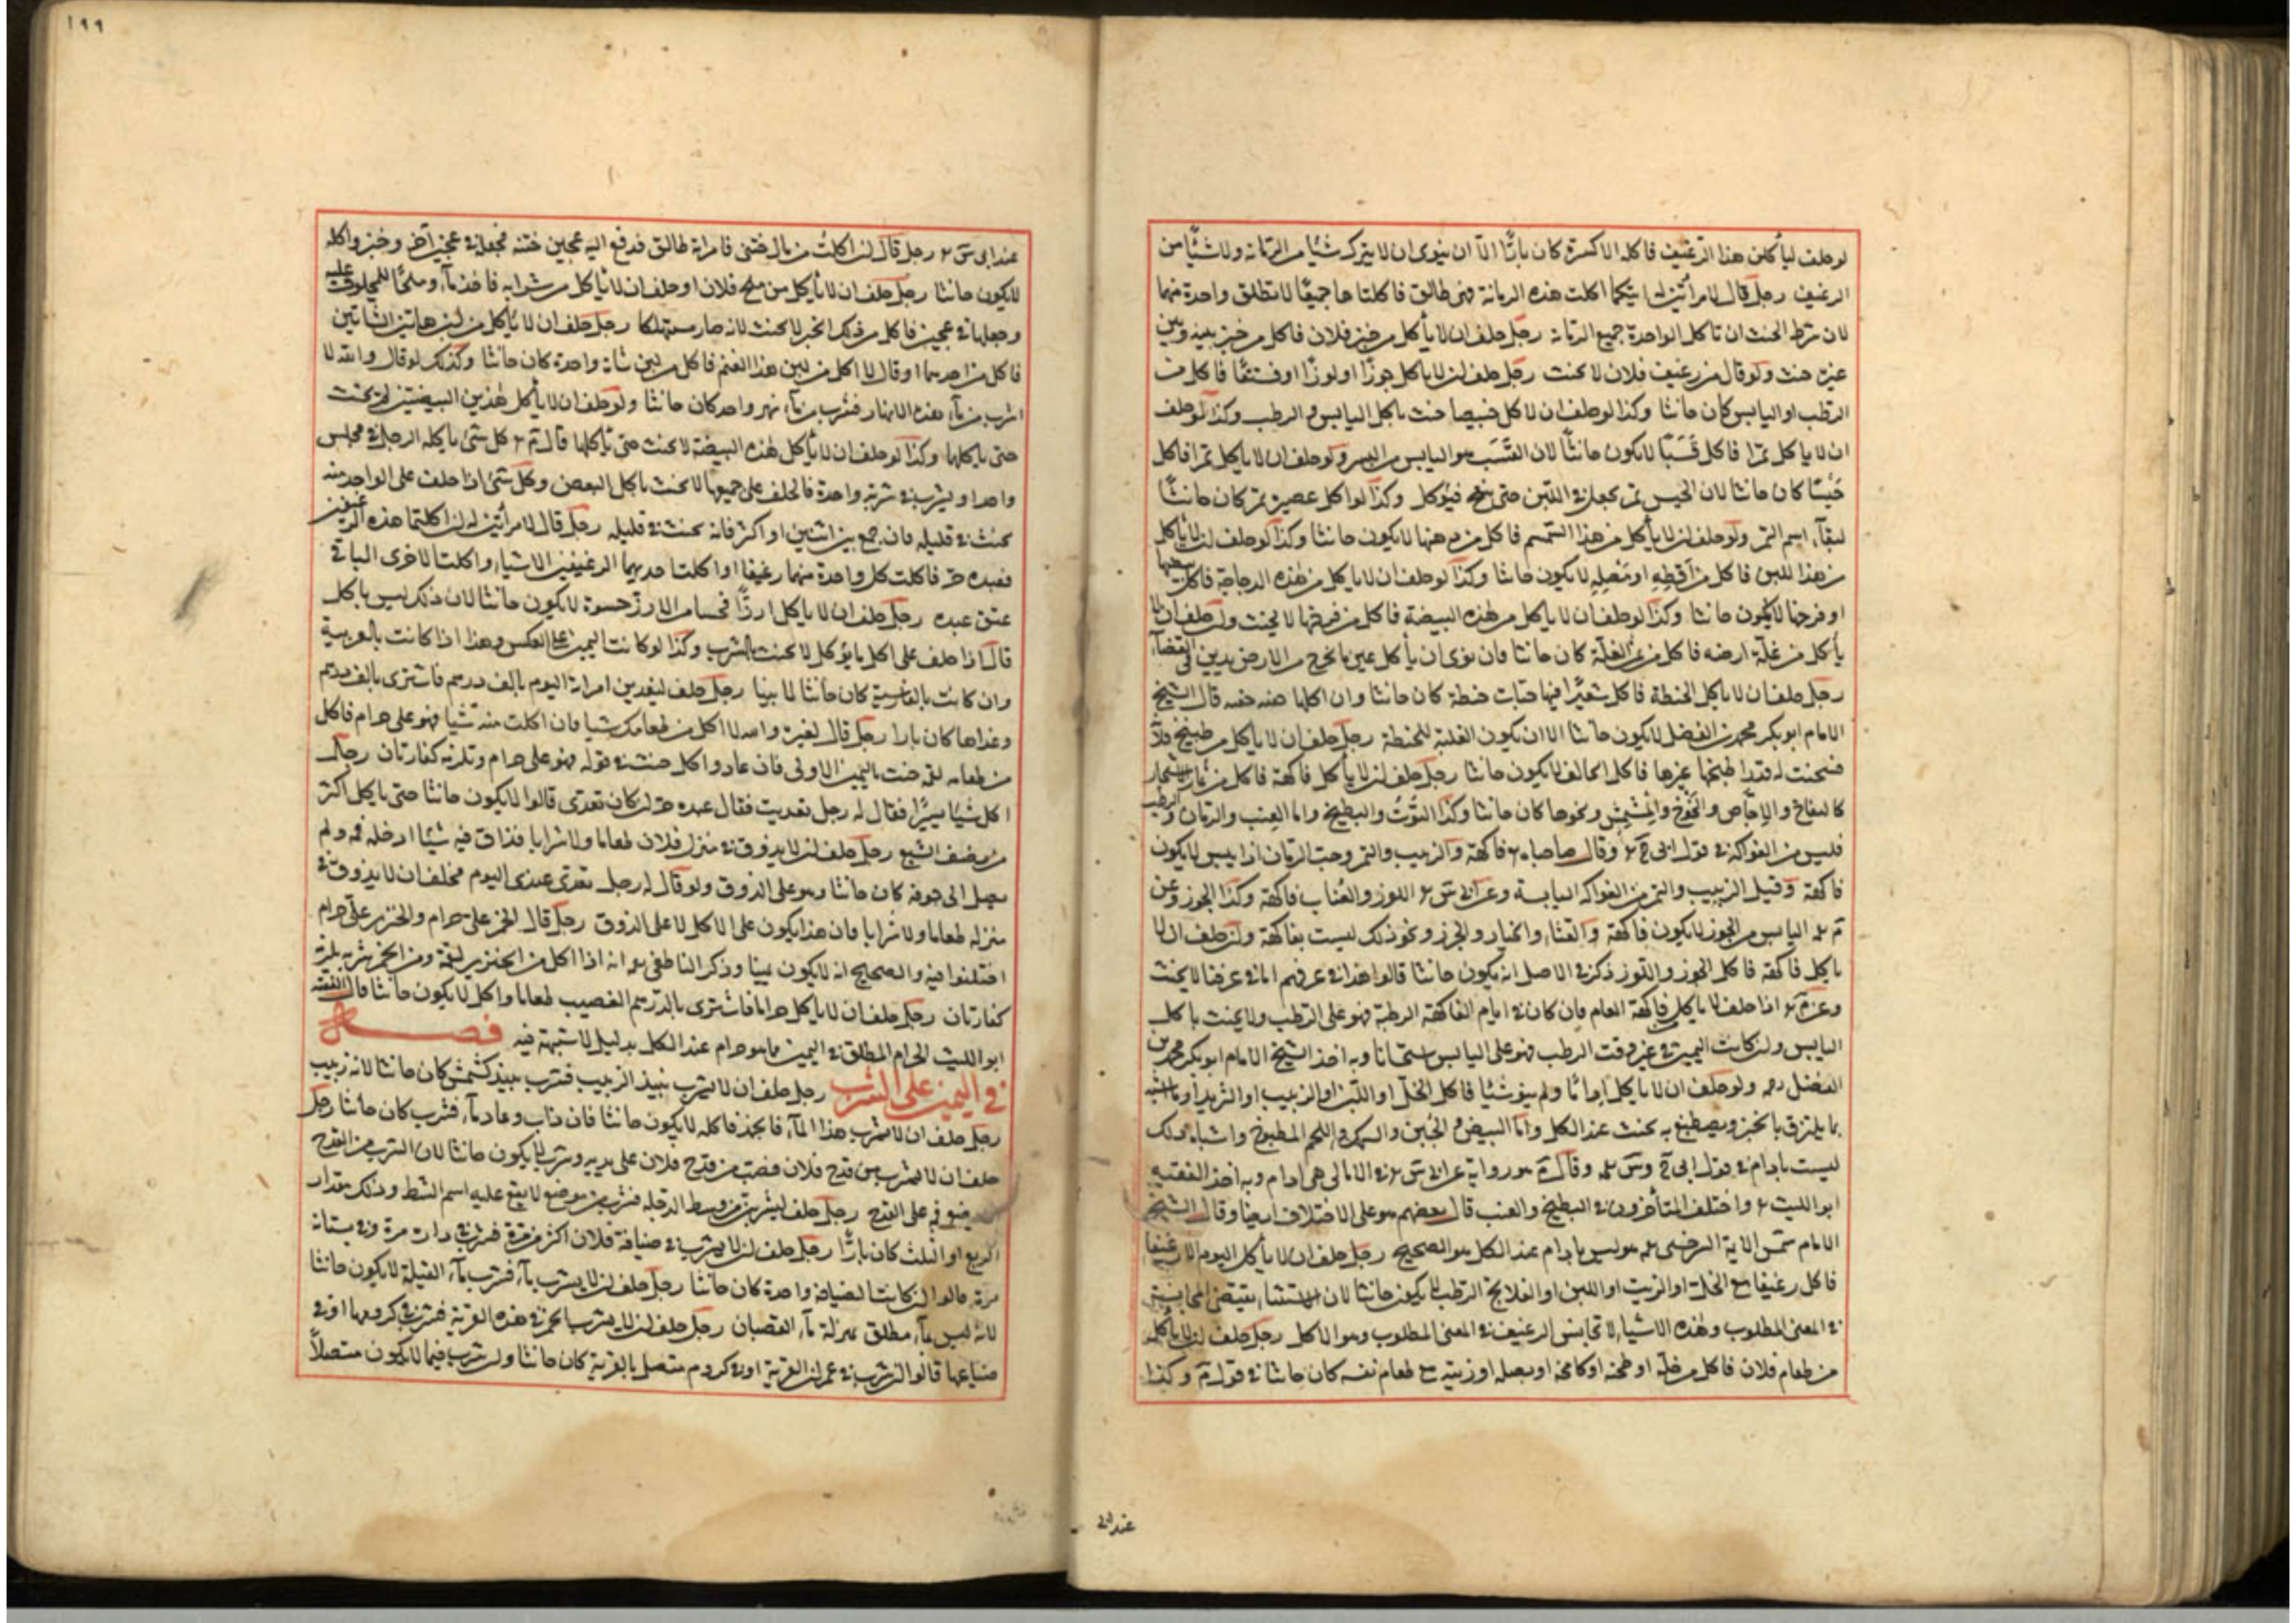 لو حلف ليأكلن هذا الرغيف فاكله الا كسرة كان بارًّا الّا ان ينوى ان لا يترك شيئا من الرمانة ولا شيًا من
الرغيف رجل قال لامرأتين له ايتكما اكلت هذه الرمانة فهى طالق فاكلتاها جميعًا لا تطلق واحدة منهما
لان شرط الحنث ان تاكل الواحدة جميع الرمانة رجل حلف ان لا يأكل من خبز فلان فاكل من خبز بينه وبين
غيره حنث ولو قال من رغيف فلان لا يحنث رجل حلف ان لا ياكل جوزًا او لوزًا او فستقًا فاكل من
الرطب او اليابس كان حانثا وكذا لو حلف ان لا كل خبيصا حنث باكل اليابس والرطب وكذا لو حلف
ان لا ياكل تمرًا فاكل قَسَبًا لا يكون حانثًا لان القسَب هو اليابس من البسر ولو حلف ان لا ياكل تمرا فاكل
حَيْسًا كان حانثا لان الحيس تمر يجعل في اللبن حتى ينتفخ فيؤكل وكذا لو اكل عصيدة تمر كان حانثًا
لبقآء اسم التمر ولو حلف ان لا يأكل من هذا السمسم فاكل من دهنها لا يكون حانثا وكذا لو حلف ان لا يأكل
من هذا اللبن فاكل من اقطه او مَصْلِهِ لا يكون حانثا وكذا لو حلف ان لا ياكل من هذه الدجاجة فاكل بيضها
او فرخها لا يكون حانثا وكذا لو حلف ان لا ياكل من هذه البيضة فاكل من فرخها لا يحنث ولو حلف ان لا
يأكل من غلّة ارضه فاكل من ثمن الغلّة كان حانثا وان نوى ان يأكل عين ما يخرج من الارض يدين في القضآء
رجل حلف ان لا ياكل الحنطة فاكل شعيرًا فيها حبّات حنطة كان حانثا وان اكلها حبة حبة قال الشيخ
الامام ابو بكر محمد بن الفضل لا يكون حانثا الا ان يكون الغلبة للحنطة رجل حلف ان لا ياكل من طبيخ فلانة
فسخنت له قدرا طبخها غيرها فاكل الحالف لا يكون حانثا رجل حلف ان لا يأكل فاكهة فاكل من ثمار الاشجار
كالتفاح والاجّاص والخَوْخ والمِشْمِش ونحوها كان حانثا وكذا التُّوْتُ والبطيخ واما العِنب والرمان والرطب
فليس من الفواكه في قول ابي ح وقال صاحباه فاكهة والزبيب والتمر وحب الرمان اذا يبس لا يكون
فاكهة وقيل الزبيب والتمر من الفواكه اليابسة وعن ابي س اللوز والعُناب فاكهة وكذا الجوز وعن
م اليابس من الجوز لا يكون فاكهة والقثاء والخيار والجزر ونحو ذلك ليست بفاكهة ولو حلف ان لا
ياكل فاكهة فاكل الجوز واللوز ذكر في الاصل انه يكون حانثا قالوا هذا في عرفهم اما في عرفنا لا يحنث
وعن م اذا حلف لا ياكل فاكهة العام فان كان في ايام الفاكهة الرطبة فهو على الرطب ولا يحنث باكل
اليابس وان كانت اليمين في غير وقت الرطب فهو على اليابس استحسانا وبه اخذ الشيخ الامام ابو بكر محمد بن
الفضل ولو حلف ان لا ياكل اداما ولم ينو شيئا فاكل الخلّ او اللبن او الزبيب او الثريد او ما اشبه
مما يلتزق بالخبز ويصطبغ به يحنث عند الكل واما البيض والجُبن والسمك واللحم المطبوخ واشباه ذلك
ليست بادام في قول ابي ح وس وقال م وهو رواية عن ابي س في الامالى هى ادام وبه اخذ الفقيه
ابو الليث واختلف المتأخرون في البطيخ والعنب قال بعضهم هو على الاختلاف ايضا وقال الشيخ
الامام شمس الايمة السرخسي هو ليس بادام عند الكل هو الصحيح رجل حلف ان لا يأكل اليوم الا رغيفا
فاكل رغيفا مع الخل او الزيت او اللبن او الفلايج الرطب لا يكون حانثا لان الاستثناء يقتضى المجانسة
في المعنى المطلوب وهذه الاشياء لا تجانس الرغيف في المعنى المطلوب وهو الاكل رجل حلف ان لا يأكل
من طعام فلان فاكل من خلّه او ملحه او كامخه او بصله او زيته مع طعام نفسه كان حانثا في قول م وكذا
عند ابى
١٩٩
عند ابي س رجل قال ان اكلتُ من مال ختنى فامراته طالق فدفع اليه عجين ختنه فجعله في عجين آخر وخبز واكله
لا يكون حانثا رجل حلف ان لا ياكل من ملح فلان او حلف ان لا يأكل من شرابه فاخذ مآء وملحًا للمحلوف عليه
وجعلها في عجين فاكل من ذلك الخبز لا يحنث لانه صار مستهلكا رجل حلف ان لا ياكل من لبن هاتين الشاتين
فاكل من احديهما او قال لا اكل من لبن هذا الغنم فاكل من لبن شاة واحدة كان حانثا وكذلك لو قال والله لا
اشرب من مآء هذه الانهار فشرب من مآء نهر واحد كان حانثا ولو حلف ان لا ياكل هذين البيضتين لا يحنث
حتى ياكلها وكذا لو حلف ان لا يأكل هذه البيضة لا يحنث حتى يأكلها قال م كل شئ ياكله الرجل في مجلس
واحد او يشربه في شربة واحدة فالحلف على جميعها لا يحنث باكل البعض وكل شئ اذا حلف على الواحد منه
يحنث في قليله وان جمع بين اثنين او اكثر فانه يحنث في قليله رجل قال لامرأتين له ان اكلتما هذه الرغيفين
فعبده حر فاكلت كل واحدة منهما رغيفا او اكلت احديهما الرغيفين الا شيا واكلت الاخرى الباقى
عتق عبده رجل حلف ان لا ياكل ارزًّا فحسا من الارز حسوة لا يكون حانثا لان ذلك ليس باكل
قال اذا حلف على اكل ما يؤكل لا يحنث بالشرب وكذا لو كانت اليمين على العكس وهذا اذا كانت بالعربية
وان كانت بالفارسية كان حانثا لما بينا رجل حلف ليغدين امراته اليوم بالف درهم فاشترى بالف درهم
وغداها كان بارا رجل قال لغيره والله لا اكل من طعامك شيا وان اكلت منه شيا فهو على حرام فاكل
من طعامه لقمة حنث باليمين الاولى فان عاد واكل حنث في قوله فهو على حرام وتلزمه كفارتان رجل
اكل شيا يسيرًا فقال له رجل تغديت فقال عبده حر ان كان تغدى قالوا لا يكون حانثا حتى ياكل اكثر
من نصف الشبع رجل حلف ان لا يذوق في منزل فلان طعاما ولا شرابا فذاق فيه شيئا ادخله فمه ولم
يصل الى جوفه كان حانثا وهو على الذوق ولو قال له رجل تغدى عندى اليوم فحلف ان لا يذوق في
منزله طعاما ولا شرابا فان هذا يكون على الاكل لا على الذوق رجل قال الخمر على حرام والخنزير علىّ حرام
اختلفوا فيه والصحيح انه لا يكون يمينا وذكر الناطفى انه اذا اكل من الخنزير لقمة ومن الخمر شربة يلزمه
كفارتان رجل حلف ان لا ياكل حراما فاشترى بالدرهم الغصيب طعاما واكل لا يكون حانثا قال الفقيه
ابو الليث الحرام المطلق في اليمين ما هو حرام عند الكل بدليل لا شبهة فيه فصل
في اليمين على الشرب رجل حلف ان لا يشرب نبيذ الزبيب فشرب نبيذ كشمش كان حانثا لانه زبيب
رجل حلف ان لا يشرب هذا المآء فانجمد فاكله لا يكون حانثا فان ذاب وعاد مآء فشرب كان حانثا رجل
حلف ان لا يشرب من قدح فلان فصب من قدح فلان على يديه وشرب لا يكون حانثا لان الشرب من القدح
ان يضع فمه على القدح رجل حلف ليشربن من وسط الدجله فشرب من موضع لا يقع عليه اسم الشط وذلك مقدار
الربع او الثلث كان بارًّا رجل حلف ان لا يشرب في ضيافة فلان اكثر من مرة فشرب في داره مرة وفي بستانه
مرة قالوا ان كانت الضيافة واحدة كان حانثا رجل حلف ان لا يشرب مآء فشرب مآء القيلة لا يكون حانثا
لانه ليس بمآء مطلق بمنزلة مآء القصبان رجل حلف ان لا يشرب الخمر في هذه القرية فشرب في كرومها او في
ضياعها قالوا ان شرب في عمران القرية او في كروم متصل بالقرية كان حانثا وان شرب فيما لا يكون متصلاً